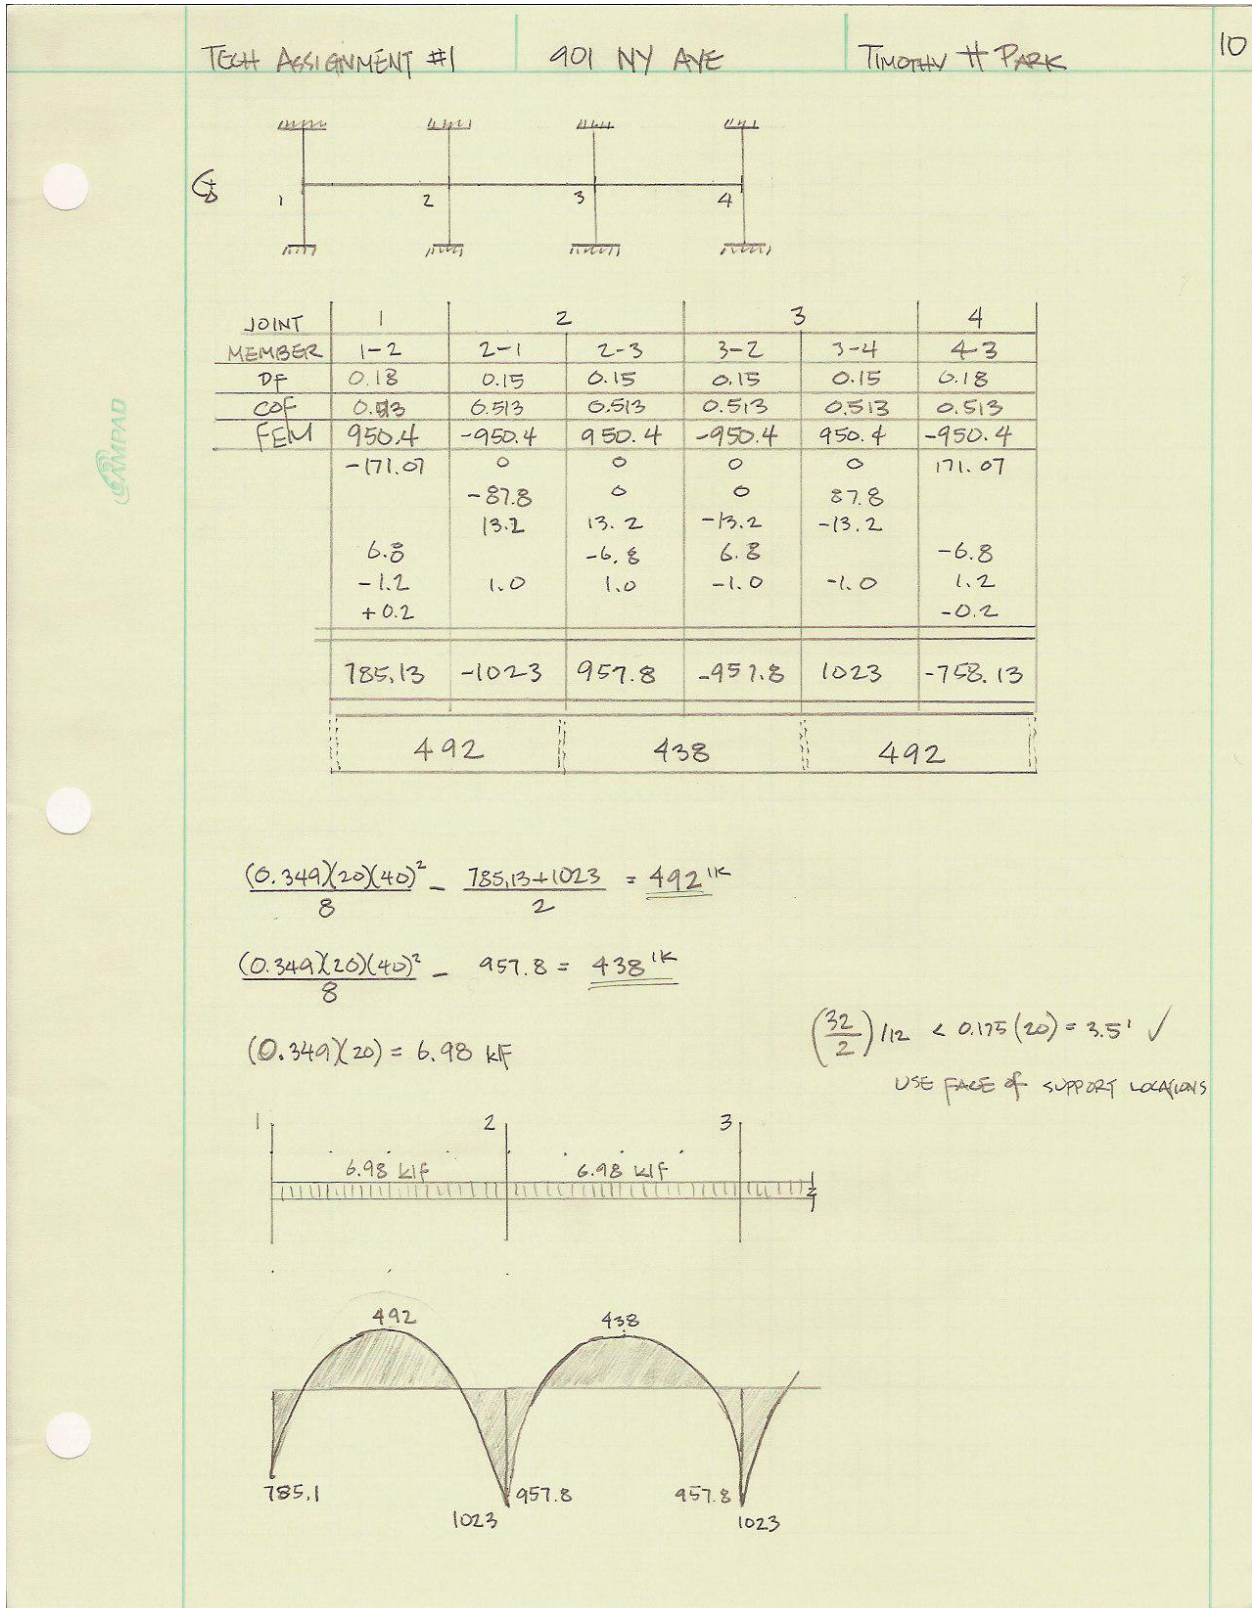 TECH ASSIGNMENT #1 901 NY AVE TIMOTHY H PARK 10
1 2 3 4
JOINT 1 2 3 4
MEMBER 1-2 2-1 2-3 3-2 3-4 4-3
DF 0.18 0.15 0.15 0.15 0.15 0.18
COF 0.513 0.513 0.513 0.513 0.513 0.513
FEM 950.4 -950.4 950.4 -950.4 950.4 -950.4
-171.07 0 0 0 0 171.07
-87.8 0 0 87.8
13.2 13.2 -13.2 -13.2
6.8 -6.8 6.8 -6.8
-1.2 1.0 1.0 -1.0 -1.0 1.2
+0.2 -0.2
785.13 -1023 957.8 -957.8 1023 -758.13
492 438 492
CAMPAD
(0.349)(20)(40)²/8 - 785.13+1023/2 = 492 'K
(0.349)(20)(40)²/8 - 957.8 = 438 'K
(0.349)(20) = 6.98 klf
(32/2)/12 < 0.175(20) = 3.5' ✓
USE FACE of SUPPORT LOCATIONS
1 2 3
6.98 klf 6.98 klf
492 438
785.1 957.8 957.8
1023 1023